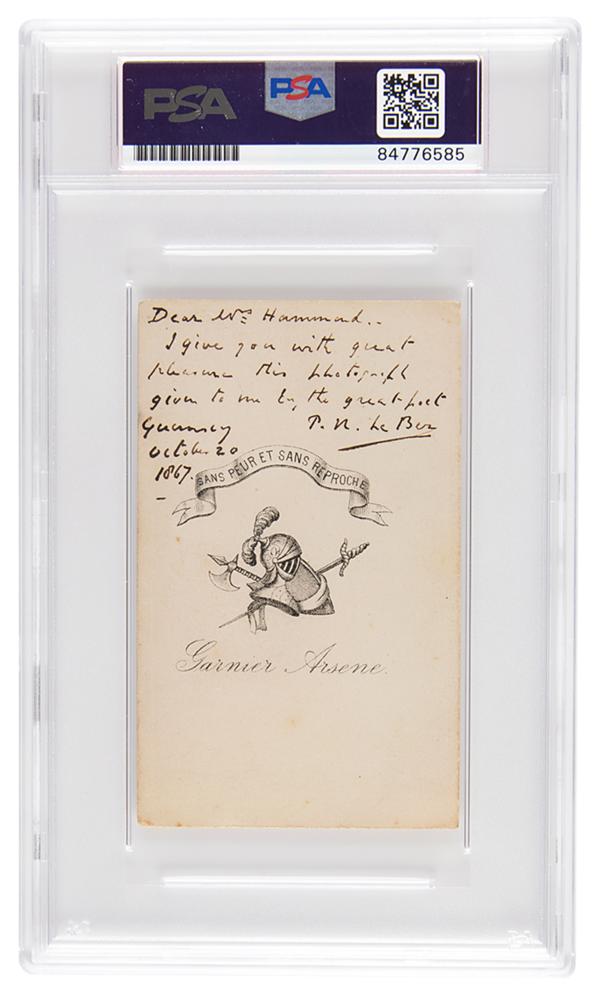 PSA
PSA
84776585
Dear Mrs Hammond..
I give you with great
pleasure this photograph
given to me by the great poet
Guernsey P. N. Le Ber
October 20
1867.
SANS PEUR ET SANS REPROCHE
Garnier Arsene.